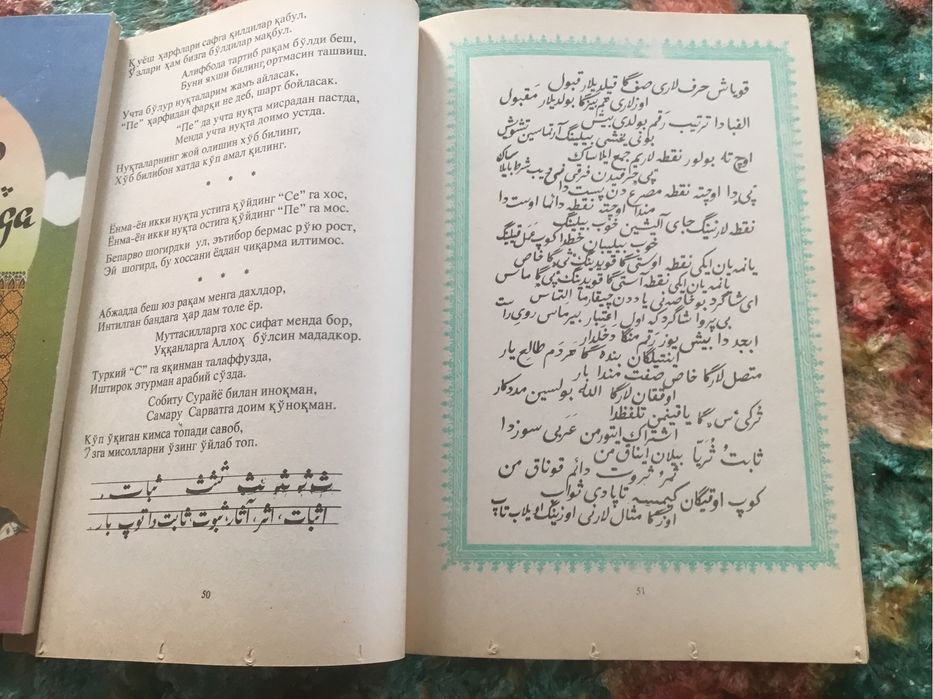 Қуёш ҳарфлари сафга қилдилар қабул,
Ўзлари ҳам бизга бўлдилар мақбул.
Алифбода тартиб рақам бўлди беш,
Буни яхши билинг, ортмасин ташвиш.
Учта бўлур нуқталарим жамъ айласак,
“Пе” ҳарфидан фарқи не деб, шарт бойласак.
“Пе” да учта нуқта мисрадан пастда,
Менда учта нуқта доимо устда.
Нуқталарнинг жой олишин хўб билинг,
Хўб билибон хатда кўп амал қилинг.
* * *
Ёнма-ён икки нуқта устига қўйдинг “Се” га хос,
Ёнма-ён икки нуқта остига қўйдинг “Пе” га мос.
Бепарво шогирдки ул, эътибор бермас рўю рост,
Эй шогирд, бу хоссани ёддан чиқарма илтимос.
* * *
Абжадда беш юз рақам менга дахлдор,
Интилган бандага ҳар дам толе ёр.
Муттасилларга хос сифат менда бор,
Уққанларга Аллоҳ бўлсин мададкор.
Туркий “С” га яқинман талаффузда,
Иштирок этурман арабий сўзда.
Собиту Сурайё билан иноқман,
Самару Сарватга доим қўноқман.
Кўп ўқиган кимса топади савоб,
Ўзга мисолларни ўзинг ўйлаб топ.
ثبات
اثبات، اثر، آثار، ثبوت، ثابت دا توپ بار
50
قویاش حرف لاری صف گا قیلدیلار قبول
اوزلاری هم بیزگا بولدیلار مقبول
الفبا دا ترتیب رقم بولدی بیش
بونی یخشی بیلینگ آرتماسین تشویش
اوچ تا بولور نقطه لاریم جمع ایلاساک
پی حرفیدن فرقی نی دیب شرط بایلاساک
پی دا اوچته نقطه مصرع دن پست دا
مندا اوچته نقطه دائما اوست دا
نقطه لارنینگ جای آلیشین خوب بیلینگ
خوب بیلیبان خطدا کوپ عمل قیلینگ
یانمه یان ایکی نقطه اوستی گا قویدینگ ثی گا خاص
یانمه یان ایکی نقطه آستی گا قویدینگ پی گا ماس
ای شاگرد بو خاصه نی یاددن چیقارما التماس
بی پروا شاگرد که اول اعتبار بیرماس روی راست
ابجد دا بیش یوز رقم منگا دخلدار
اینتیلگان بنده گا هر دم طالع یار
متصل لارگا خاص صفت مندا بار
اوققان لارگا الله بولسین مددکار
ترکی س گا یاقینمن تلفظدا
اشتراک ایتورمن عربی سوزدا
ثابت ثریا بیلان ایناق من
ثمر ثروت دائم قوناق من
کوپ اوقیگان کیمسه تاپادی ثواب
اوزگا مثال لارنی اوزینگ اویلاب تاپ
51